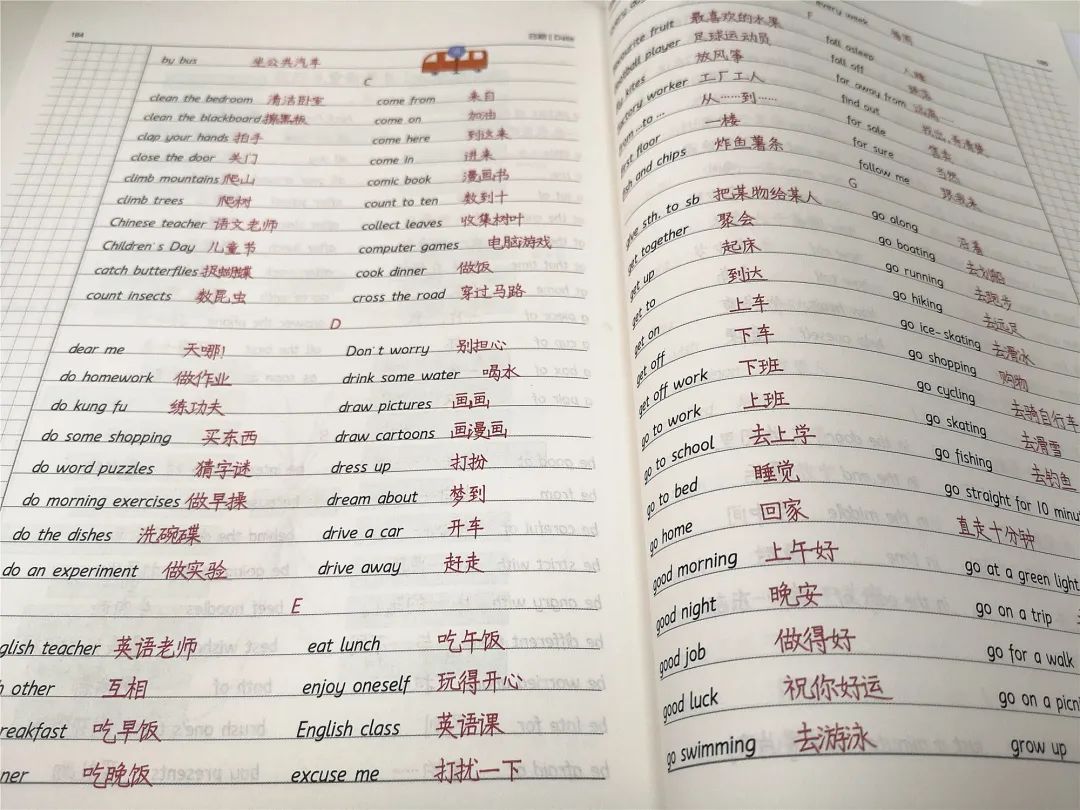 184
日期 | Date
by bus 坐公共汽车
C
clean the bedroom 清洁卧室 come from 来自
clean the blackboard 擦黑板 come on 加油
clap your hands 拍手 come here 到这来
close the door 关门 come in 进来
climb mountains 爬山 comic book 漫画书
climb trees 爬树 count to ten 数到十
Chinese teacher 语文老师 collect leaves 收集树叶
Children's Day 儿童节 computer games 电脑游戏
catch butterflies 捉蝴蝶 cook dinner 做饭
count insects 数昆虫 cross the road 穿过马路
D
dear me 天哪! Don't worry 别担心
do homework 做作业 drink some water 喝水
do kung fu 练功夫 draw pictures 画画
do some shopping 买东西 draw cartoons 画漫画
do word puzzles 猜字谜 dress up 打扮
do morning exercises 做早操 dream about 梦到
do the dishes 洗碗碟 drive a car 开车
do an experiment 做实验 drive away 赶走
E
glish teacher 英语老师 eat lunch 吃午饭
h other 互相 enjoy oneself 玩得开心
reakfast 吃早饭 English class 英语课
ner 吃晚饭 excuse me 打扰一下
every week 每周
F
avourite fruit 最喜欢的水果 fall asleep 入睡
ootball player 足球运动员 fall off
fly kites 放风筝 far away from 远离…
factory worker 工厂工人 find out
from ...to ... 从……到…… for sale 售卖
first floor 一楼 for sure 当然
fish and chips 炸鱼薯条 follow me 跟我来
G
give sth. to sb 把某物给某人 go along 沿着
get together 聚会 go boating 去划船
get up 起床 go running 去跑步
get to 到达 go hiking 去远足
get on 上车 go ice-skating 去滑冰
get off 下车 go shopping 购物
get off work 下班 go cycling 去骑自行车
go to work 上班 go skating 去滑雪
go to school 去上学 go fishing 去钓鱼
go to bed 睡觉 go straight for 10 minu
go home 回家 直走十分钟
good morning 上午好 go at a green light
good night 晚安 go on a trip
good job 做得好 go for a walk
good luck 祝你好运 go on a picn
go swimming 去游泳 grow up